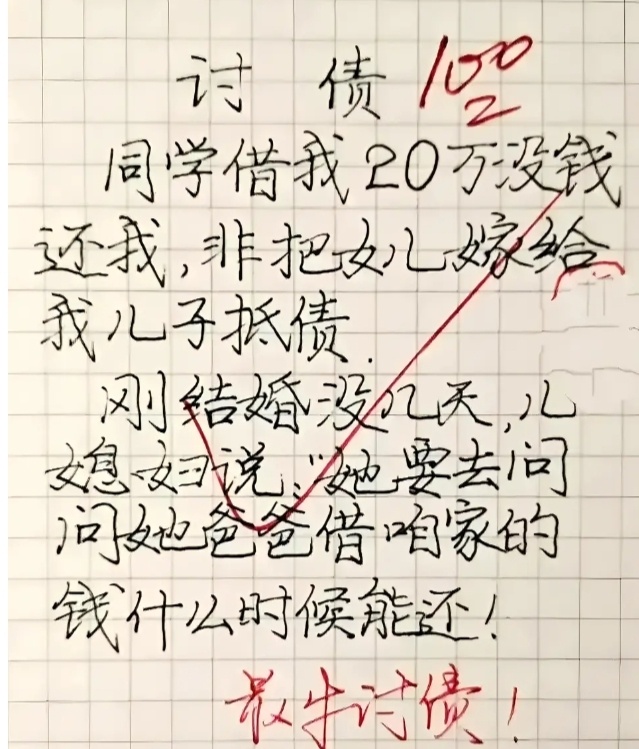 讨 债 100
同学借我20万没钱
还我,非把女儿嫁给
我儿子抵债.
刚结婚没几天,儿
媳妇说:"她要去问
问她爸爸借咱家的
钱什么时候能还!
最牛讨债!